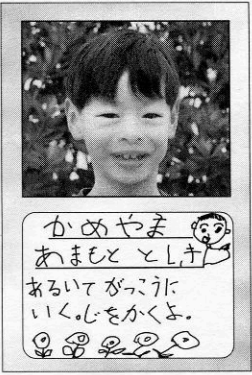 かめやま
あまもと としき
あるいて がっこうに
いく。じをかくよ。